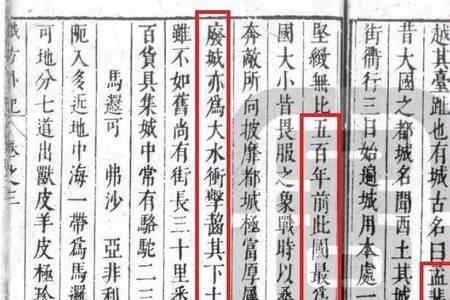 越其臺趾也有城古名曰孟斐
昔大國之都城名聞西土其城
街衢行三日始遍城用本處一
堅緻無比五百年前此國最爲
國大小皆畏服之象戰時以桑
奔敵所向披靡都城極富厚屬
廢城亦爲大水衝擊齧其下土
雖不如舊尚有街長三十里悉
百貨具集城中常有駱駝二三
馬邏可 弗沙 亞非利
阨入多近地中海一帶爲馬邏
可地分七道出獸皮羊皮極珍
職方外紀 卷之三